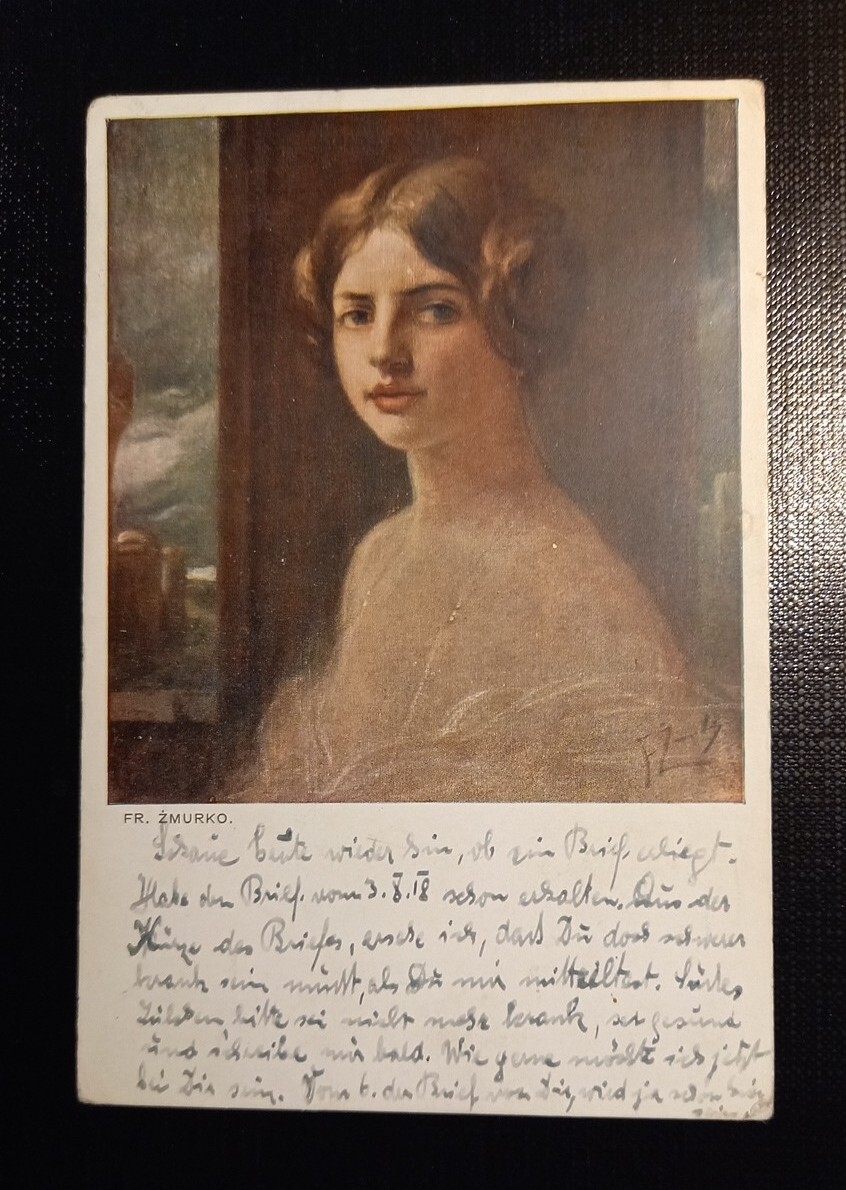 FR. ŻMURKO.
Schaue heute wieder hin, ob ein Brief erliegt.
Habe den Brief vom 3.X.18 schon erhalten. Aus der
Kürze des Briefes, ersehe ich, daß Du doch schwerer
krank sein mußt, als Du mir mitteiltest. Süßes
bitte sei nicht mehr krank, sei gesund
und schreibe mir bald. Wie gerne möchte ich jetzt
bei Dir sein. Vom 6. der Brief von Dir, wird ja schon